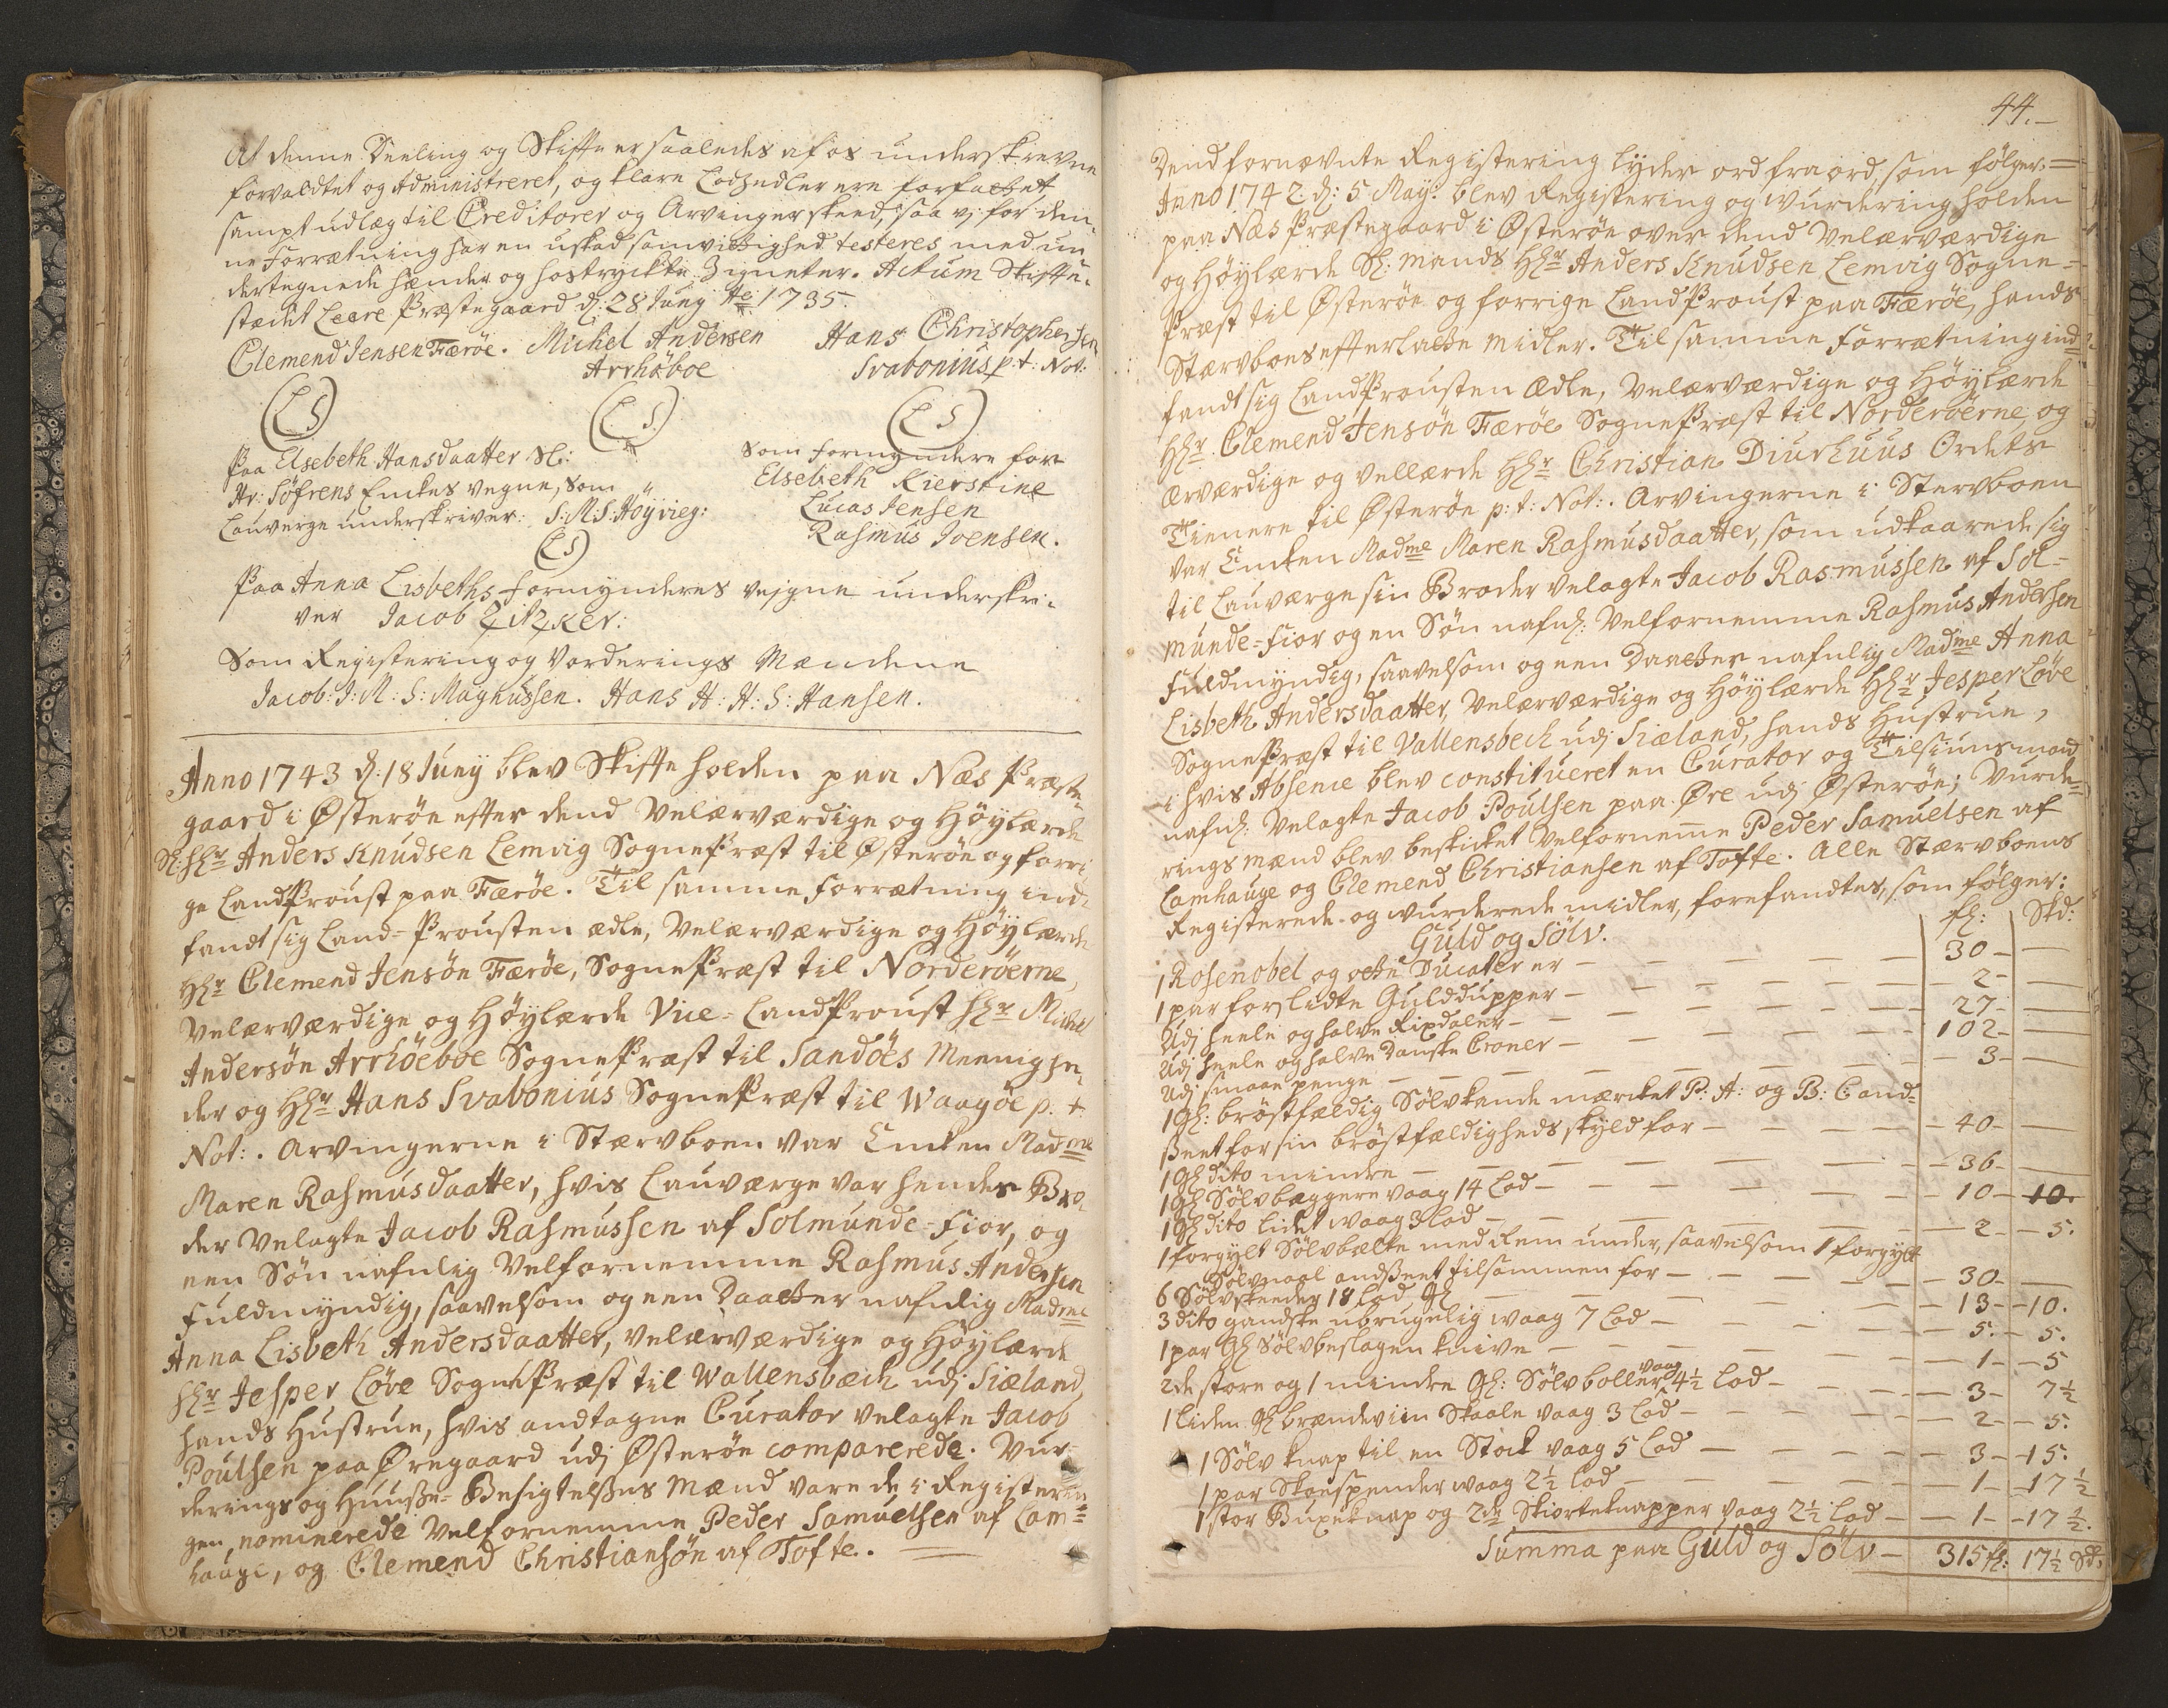 At denne Deeling og Skifte er saaledes af os underskrevne
forvaldtet og Administreret, og klare Lodzedler ere forfattet,
sampt udlæg til Creditorer og Arvinger skeed, saa vj for den-
ne Forrætning har en uskad samvittighed testeres med un-
dertegnede hænder og hostryckte Zigneter. Actum Skifte-
stædet Leere Præstegaard dj: 28 Junij Ao 1735.
Clemend Jensen Færöe. Michel Andersen Hans Christophersen
Arrhöboe Svabonius p: t: Not:
(L S) (L. S.) (L S)
Paa Elsebeth Hansdaatter Sl:
Hr: Söfrens Enkes vegne, som
Lauverge underskriver: S. M. S. Höyvieg:
(L S)
Som Formyndere for
Elsebeth Kierstine
Lucas Jensen
Rasmus Joensen.
Paa Anna Lisbeths Formynderes vejgne underskri-
ver Jacob Zitzker:
Som Registering og Vorderings Mændene
Jacob: J: M: S: Maghussen. Hans H: H: S: Hansen.
Anno 1743 dj: 18 Junij blev Skifte holden paa Næs Præste-
gaard i Österöe efter dend Velærværdige og Höylærde
Sl: Hr Anders Knudsen Lemvig Sognepræst til Österöe og forri-
ge Landproust paa Færöe. Til samme forrætning ind-
fandt sig Land-Prousten ædle, Velærværdige og Höylærde
Hr Clemend Jensön Færöe, Sognepræst til Norderöerne,
Velærværdige og Höylærde Vice-Landproust Hr Michel
Andersön Arrhöeboe Sognepræst til Sandöes Meenighe-
der og Hr Hans Svabonius Sognepræst til Waagöe p. t.
Not:. Arvingerne i Stærvboen var Enken Madme
Maren Rasmusdaatter, hvis Lauværge var hendes Bro-
der Velagte Jacob Rasmussen af Solmunde-Fior, og
een Sön nafnlig Velfornemme Rasmus Andersen
Fuldmyndig, saavelsom og een Daatter nafnlig Madme
Anna Lisbeth Andersdaatter, Velærværdige og Höylærde
Hr Jesper Löve Sognepræst til Wallensbæck udj Siæland
hands Hustrue, hvis andtagne Curator velagte Jacob
Poulsen paa Öregaard udj Österöe comparerede. Vur-
derings og Huusse-Besigtelsses Mænd vare de i Registerin-
gen, nominerede Velfornemme Peder Samuelsen af Lam-
hauge, og Clemend Christiansön af Tofte.
44.
Dend fornævnte Registering lyder ord fra ord, som fölger:
Anno 1742 dj: 5 Maij: blev Registering og wurdering holden
paa Næs Præstegaard i Österöe over dend Velærværdige
og Höylærde Sl: Mands Hr Anders Knudsen Lemvig Sogne-
Præst til Österöe og forrige Landproust paa Færöe, hands
Stærvboes efterladte Midler. Til samme Forrætning ind-
fandt sig Landprousten Ædle, Velærværdige og Höylærde
Hr Clemend Jensön Færöe Sognepræst til Norderöerne, og
Ærværdige og Vellærde Hr Christian Diurhuus Ordets
Tienere til Österöe p: t: Not:. Arvingerne i Stervboen
var Enken Madme Maren Rasmusdaatter, som udkaarede sig
til Lauværge sin Broder velagte Jacob Rasmussen af Sol-
munde-Fior og en Sön nafnl: Velfornemme Rasmus Andersen
Fuldmyndig, saavelsom og een Daatter nafnlig Madme Anna
Lisbeth Andersdaatter, Velærværdige og Höylærde Hr Jesper Löve
Sognepræst til Vallensbech udj Siæland, hands Hustrue,
i hvis Absence blev constitueret en Curator og Tilsiunsmand
nafnl: Velagte Jacob Poulsen paa Öre udj Österöe; Vurde-
rings mænd blev beskicket Velfornemme Peder Samuelsen af
Lamhauge og Clemend Christiansen af Tofte. Alle Stærvboens
Registerede og wurderede midler, forefandtes, som fölger:
Guld og Sölv. fl: Skd:
1 Rosenobel og otte Ducater er — 30 —
1 par forslidte Guldduppper — 2 —
Udj heele og halve Rixdaler — 27 —
Udj heele og halve Danske Croner — 102 —
Udj smaae penge — 3 —
1 gl: bröstfældig Sölvkande mærcket P: A: og B: C and-
sseet for sin bröstfældigheds skyld for — 40 —
1 gl dito mindre — 36 —
1 gl Sölvbæggere vaag 14 Lod — 10 — 10.
1 gl dito lidet waag 3 Lod — 2 — 5.
1 forgylt Sölvbælte med Rem under, saavelsom 1 forgylt
Sölvnaal andsseet tilsammen for — 30 —
6 Sölvskeeder 18 Lod gl — 13 — 10.
3 dito gandske ubrugelig waag 7 Lod — 5. — 5.
1 par gl Sölvbeslagen knive — 1 — 5
2de store og 1 mindre gl: Sölvboller vaag 4½ Lod — 3 — 7½
1 liden gl brændeviin Skaale vaag 3 Lod — 2 — 5.
1 Sölv knap til en Stock vaag 5 Lod — 3 — 15.
1 par Skoespender waag 2½ Lod — 1 — 17½
1 stor Buxeknap og 2de Skiorteknapper vaag 2½ Lod — 1 — 17½.
Summa paa Guld og Sölv — 315 fl: 17½ Sk: